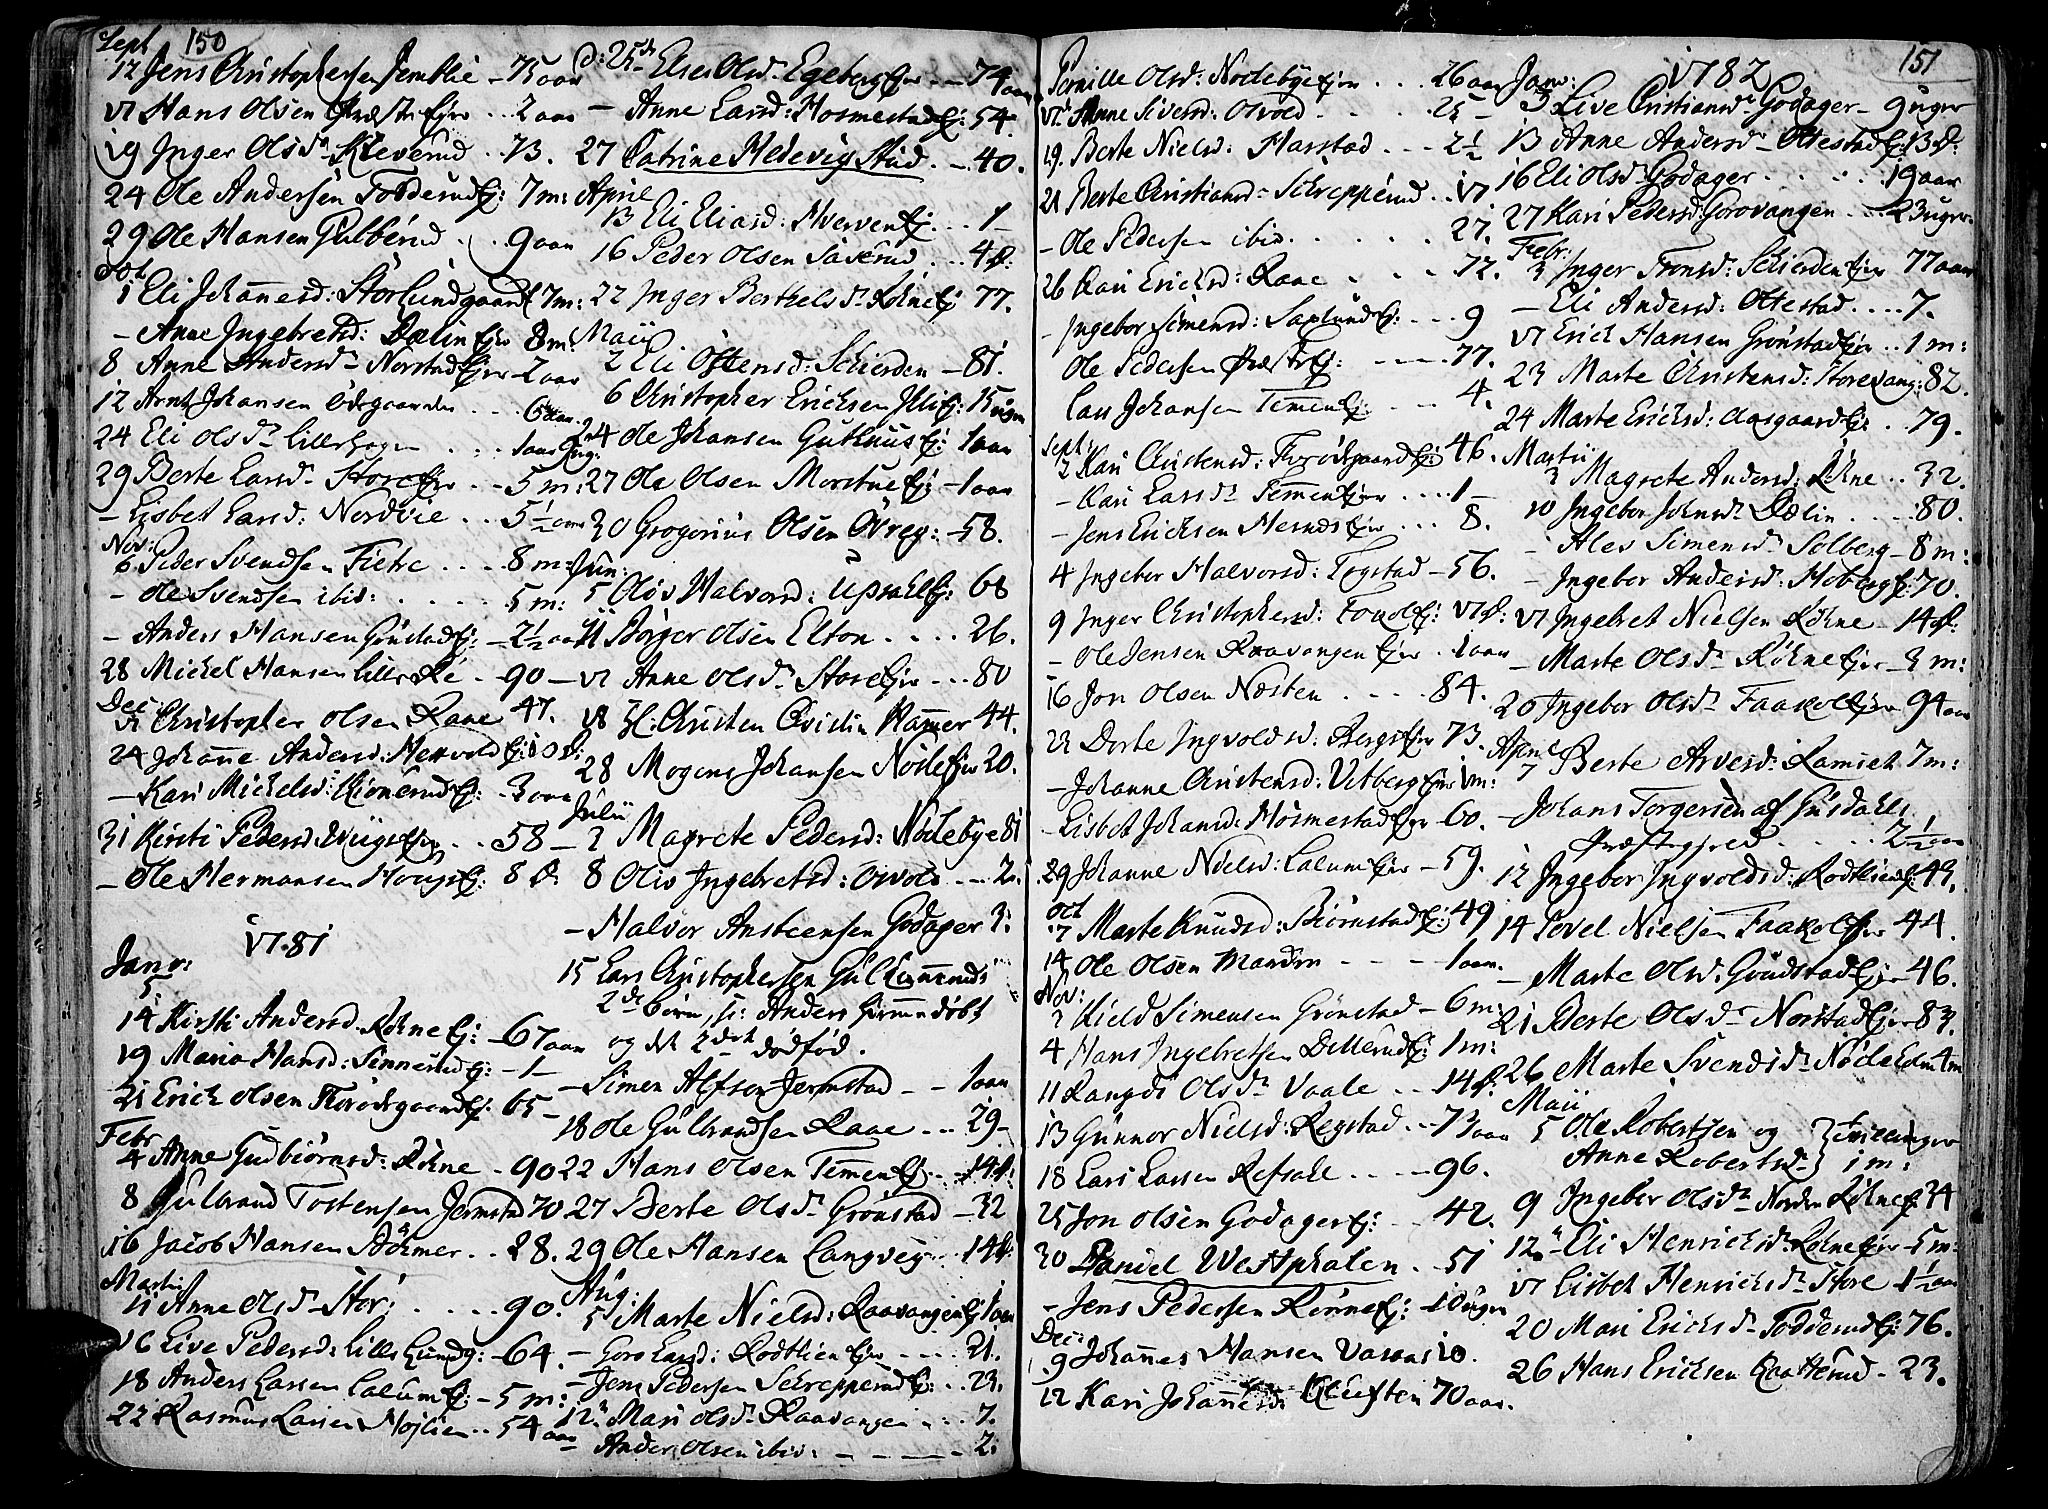 Sept 150
12 Jens Christophersen Jemblie - 75 aar
17 Hans Olsen Præsteejer - 2 aar
19 Inger Olsdr Kleverud - 73.
24 Ole Andersen Todderudej: 7 m:
29 Ole Hansen Gulberud - 9 aar
Oct
1 Eli Johannesd: Storlundgaard 7 m:
- Anne Ingebretsd: Dælin Ejer 8 m:
8 Anne Andersdr Norstad Ejer - 2 aar
12 Johansen Ødegaarden - 6
24 Eli Olsdr Lillehagen 1 aar
29 Berte Larsd - Store Ejer - 5 m:
- Lisbet Larsd: Nordvie - 5 1/2 aar
Nov:
6 Peder Svendsen Fietre - 8 m:
- Ole Svendsen ibid: - 5 m:
- Anders Hansen Grüstad Ej: - 2 1/2 aar
28 Michel Hansen Lille Re - 90 -
Dec:
Christopher Olsen Raae 47.
24 Johanne Andersd: Ej: 10 d:
- Kari Michelsd: Ej: - 3 aar
31 Kirsti Pedersd: Ejer - 58 -
- Ole Hermansen Houg Ej: 8 d.
1781
Janr:
5
14 Kirsti Andersd. Røhne Ej: - 67 aar
19 Maria Hansd: Sinnerud Ej: - 1 -
21 Erich Olsen Ej. 65 -
Febr
4 Anne Gudbiørnsd: Røhne - 90
8 Gulbrand Tostensen Jermstad 70
16 Jacob Hansen Bøhmer - 28.
Martii
11 Anne Olsdr Stor: - 90.
16 Live Pedersd: Lille Lundg: - 64.
18 Anders Larsen Lalum Ej - 5 m:
22 Rasmus Larsen Mojlien - 54 aar
D: 25de Else Olsd: Egeberg Ejer - 74 aar
- Anne Larsd: Hosmestad Ej: 54 -
27 Catrine Hedevig Stud. - 40.
April
13 Eli Eliasd: Hverven Ej: - 1 -
16 Peder Olsen Saxerud - 4 d:
22 Inger Berthelsdr Røhne Ej 77.
Maii
2 Eli Ottensd: Schierden - 81.
6 Christopher Erichsen Ej: 15 uger
24 Ole Johansen Guthuus Ej: 1 aar
27 Ole Olsen Morstue Ej: - 1 aar
30 Gregorius Olsen Øvreg: - 58.
Jun:
5 Oliv Halvorsd: Upsahl Ej: 68
11 Børger Olsen Elton - 26.
17 Anne Olsdr Store Ejer - 80
18 H: Christen Hammer 44.
28 Mogens Johansen Nøsle Ejer 20.
Julii
2 Magrete Pedersd: Nødebye 81
8 Oliv Ingebretsd: Ovold - 2.
- Halvor Ansteensen Godager 3:
15 Lars Christophersen Gulkinneruds
2de børn, s: Anders hiemmedøbt
og det 2det dødfød.
- Simen Alfson Jermstad - 1 aar
18 Ole Gulbrandsen Raae - 29 -
22 Hans Olsen Temen Ej: - 14 d:
27 Berte Olsdr Grönstad - 32
29 Ole Hansen Langveg - 14 d:
Aug:
5 Marte Nielsd: Raavangen Ej 1 aar
- Goro Larsd: Rodtlien Ejer - 21.
- Jens Pedersen Schrepperud Ej: - 23.
12 Mari Olsdr Raavangen - 7.
Anders Olsen ibid: - 2:
151
Pernille Olsd: Nodebye Ejer - 26 aar
17 Anne Siversd: Olvold - 25 -
19. Berte Nielsd: Harstad - 2 1/2
21 Berte Christiansd - Schrepperud - 17
- Ole Pedersen ibid. - 27.
26 Kari Erichsd: Raae - 72.
- Ingebor Simensd: Saxlund Ej: - 9
Ole Pedersen Præst Ej: - 77.
Lars Johansen Temmen Ej: - 4.
Sept:
2 Kari Christensd: Ej: 46.
- Kari Larsdr Temmen Ejer - 1 -
- Jens Erichsen Hernæs Ejer - 8.
4 Ingebor Halvorsd: Togstad - 56.
9 Inger Christophersd: Ej: 17 d:
- Ole Jensen Raavangen Ejer - 1 aar
16 Jon Olsen Næsten - 84.
23 Dorte Ingvoldsd: Berg Ejer 73.
- Johanne Christensd: Vitberg Ejer 1 m:
- Lisbet Johansd: Hosmestad Ejer - 60.
29 Johanne Nielsd: Lalum Ejer - 59.
Oct
7 Marte Knudsd: Biørnstad Ej: 49
14 Ole Olsen Manden - 1 aar.
Nov:
2 Kield Simensen Grönstad - 6 m:
4 Hans Ingebretsen Dillerud Ej: 1 m:
11 Rangdi Olsdr Vaale - 14 d:
13 Gunnor Nielsd: Regstad - 73 aar
18 Lars Larsen Refsahl - 96.
25 Jon Olsen Godager Ej: - 42.
30 Daniel Westphalen - 51
- Jens Pedersen Rønne Ej: - 10 uger
Dec:
9 Johannes Hansen 10.
12 Kari Johannesd: Kluften 70 aar.
1782
Janr:
3 Live Cristiansdr Godager - 9 uger
13 Anne Andersd - Ottestad Ej: 13 d:
16 Eli Olsdr Godager - 19 aar
27 Kari Pedersd: Gorovangen - 23 uger
Febr:
3 Inger Tronsd: Schierden Ejer 77 aar
- Eli Andersd: Ottestad - 7.
17 Erich Hansen Grönstad Ejer - 1 m:
23 Marte Christensd: Storevang: 82.
24 Marte Erichsd: Aasgaard Ej - 79.
Martii
3 Magrete Andersd: Røhne - 32.
10 Ingebor Johnsdr Dælin - 80.
- Ales Simensdr Solberg - 8 m:
- Ingebor Andersd: Hoberg Ej: 70.
17 Ingebret Nielsen Røhne - 14 d:
- Marte Olsdr Røhne Ejer - 3 m:
20 Ingebor Olsdr Faakol Ejer 94 aar
April
7 Berte Arvesd: Ramset 7 m:
- Johans Torgersen af Gusdahls
Præstegjeld - 2 1/2 aar
12 Ingebor Ingvoldsd: Rodtlien Ej: 43.
14 Povel Nielsen Faakol Ejer 44.
- Marte Olsd: Grüdstad Ejer - 46.
21 Berte Olsdr Norstad Ejer 83.
26 Marte Svendsdr Nøsle 4 m
Maii
5 Ole Robertsen og } tvillinger
Anne Robertsdr } 1 m:
9 Ingebor Olsdr Norden Røhne Ej 34
12 - Eli Henrichsd: Røhne Ejer - 5 m:
17 Lisbet Henrichsdr Store 1 1/2 aar
20 Mari Erichsdr Todderud Ej: 76.
26 Hans Erichsen Raatterud - 23.